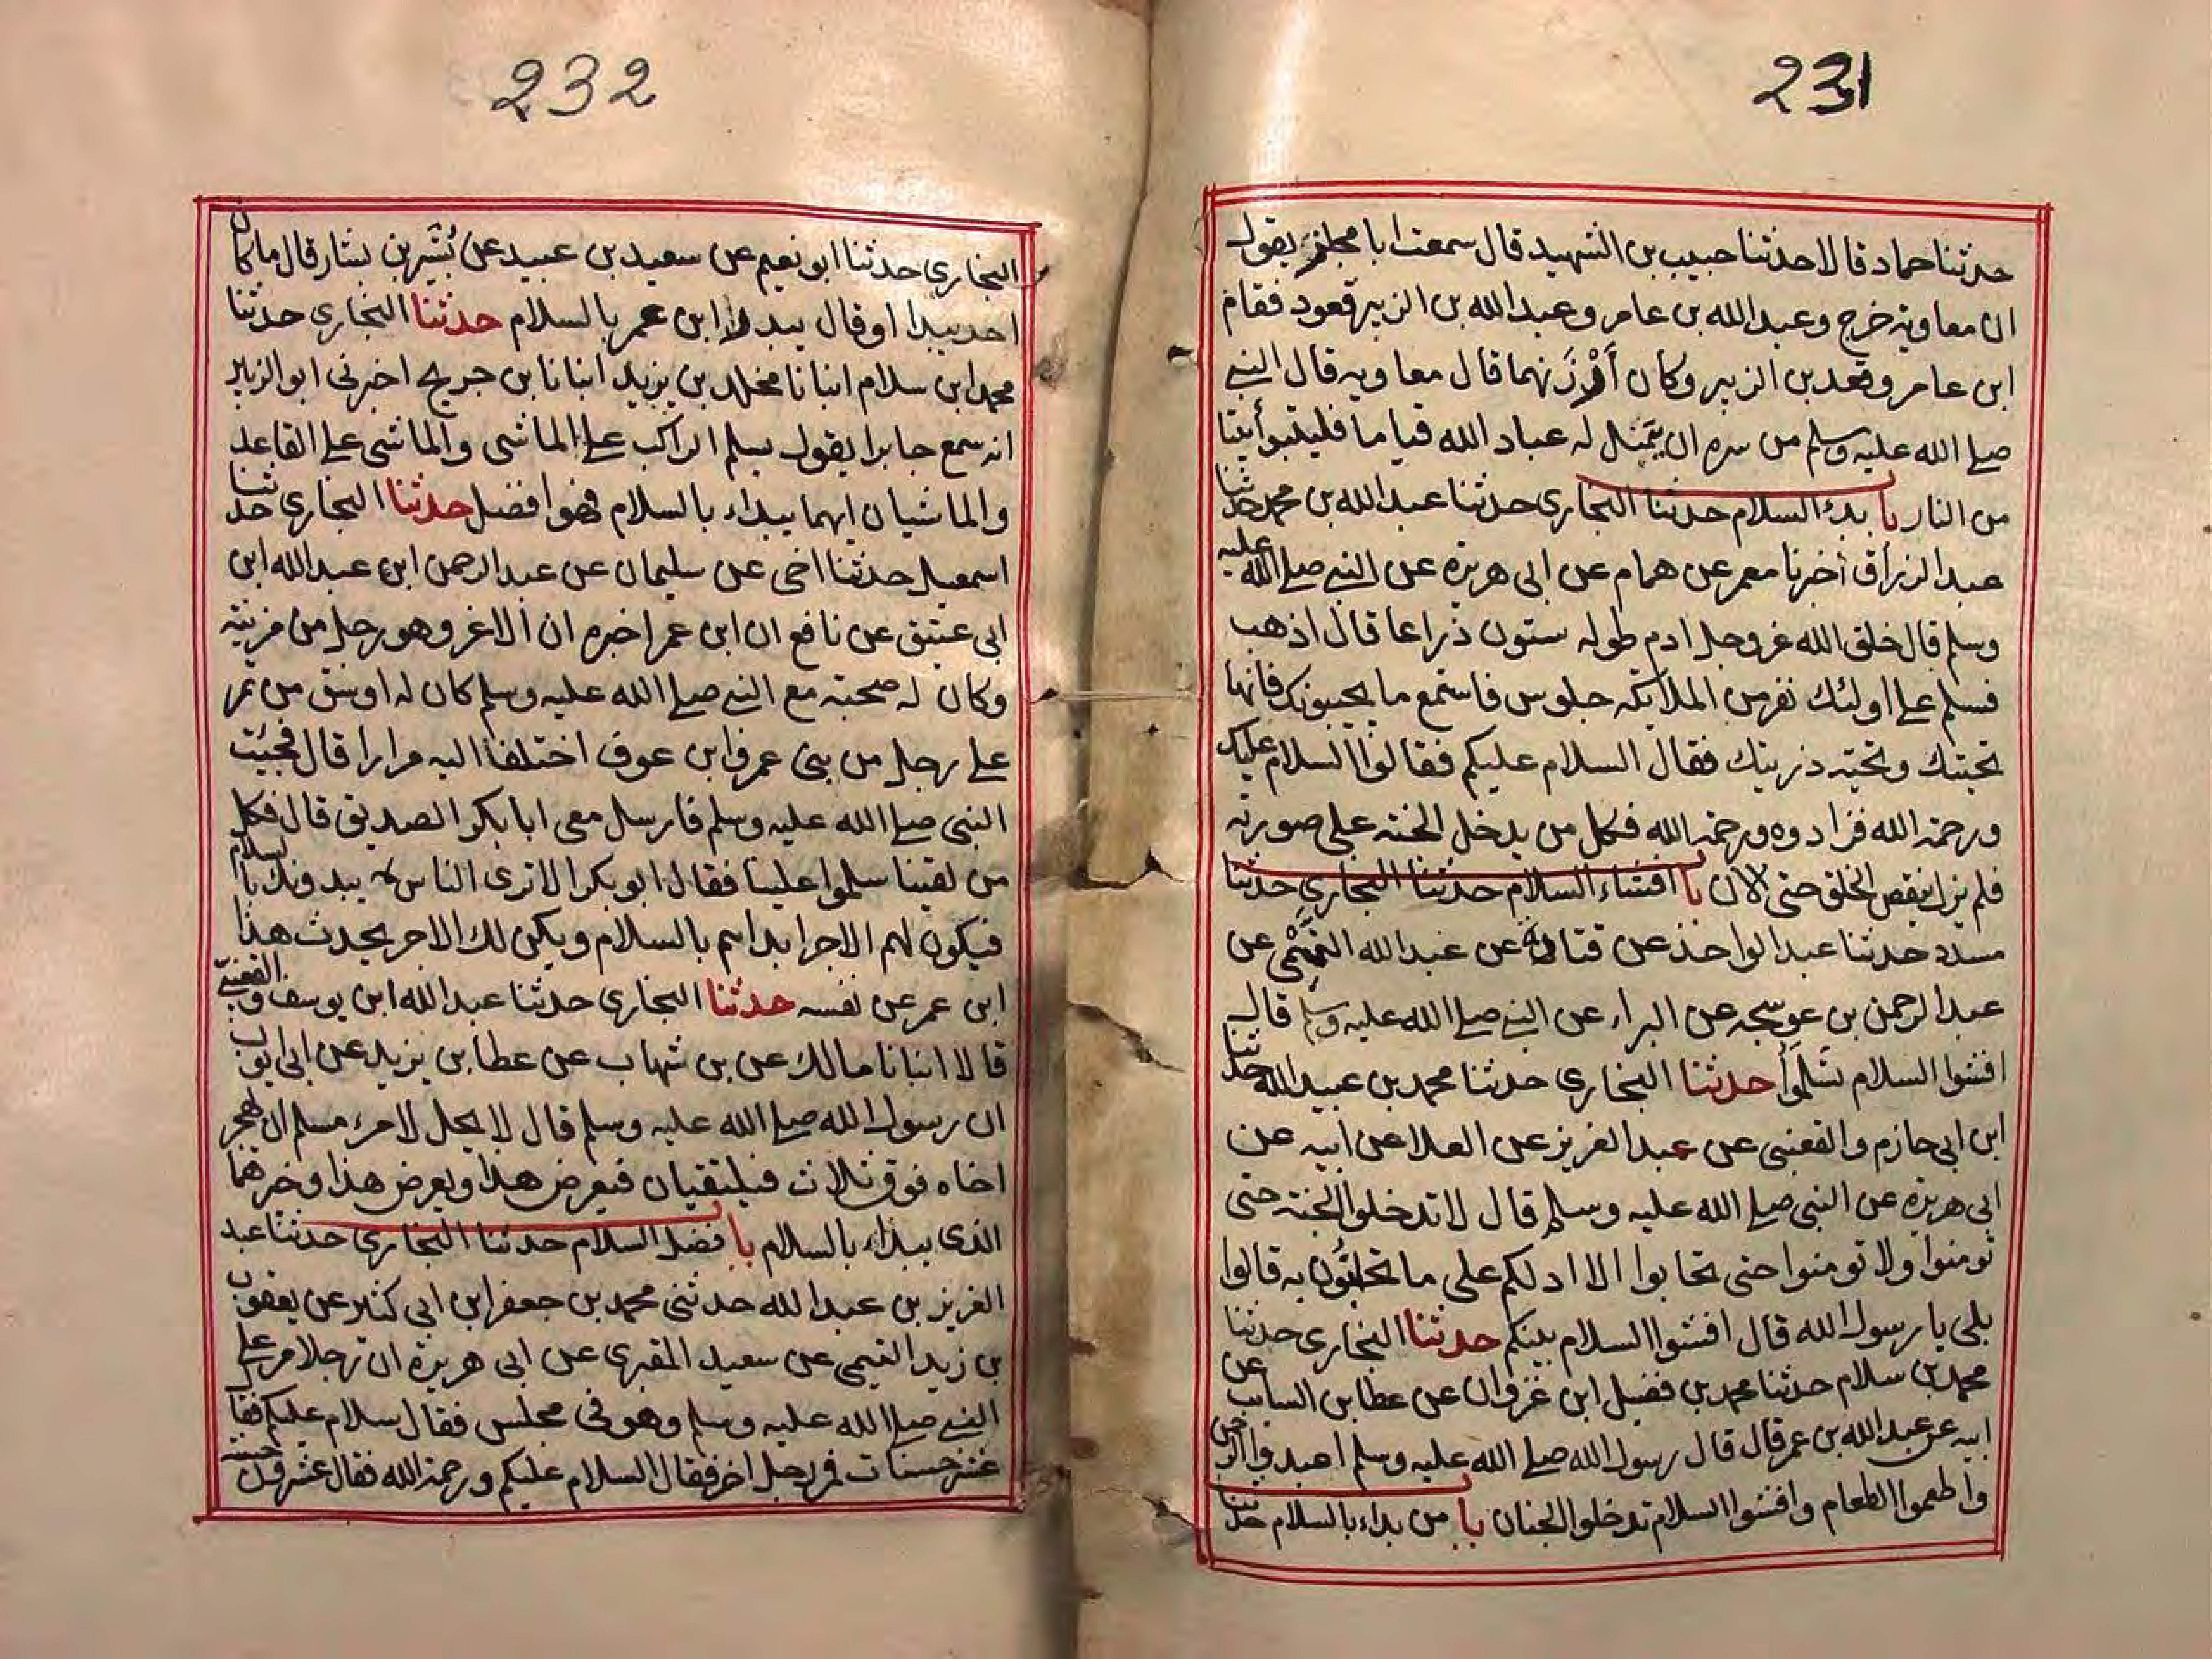 231
حدثنا حماد قالا حدثنا حبيب بن الشهيد قال سمعت ابا مجلز يقول
ان معاويه خرج وعبد الله بن عامر وعبد الله بن الزبير قعود فقام
ابن عامر وقعد بن الزبير وكان أَرْزَنهما قال معاويه قال النبي
صلي الله عليه وسلم من سره ان يَمثل له عباد الله قياما فليتبوأ بيتا
من النار با بدء السلام حدثنا البخاري حدثنا عبد الله بن محمد حدثنا
عبد الرزاق أخبرنا معمر عن همام عن ابى هريرة عن النبي صلي الله عليه
وسلم قال خلق الله عز وجل ادم طوله ستون ذراعا قال اذهب
فسلم علي اولئك نفر من الملايكه جلوس فاستمع ما يجيبونك فانها
تحيتك وتحية ذريتك فقال السلام عليكم فقالوا السلام عليك
ورحمة الله فزادوه ورحمة الله فكل من يدخل الجنة على صورته
فلم يزل ينقص الخلق حتى الآن با افشاء السلام حدثنا البخاري حدثنا
مسدد حدثنا عبد الواحد عن قنان عن عبد الله النهمي عن
عبد الرحمن بن عوسجه عن البراء عن النبي صلي الله عليه وسلم قال
افشوا السلام تَسْلَموا حدثنا البخاري حدثنا محمد بن عبيد الله حدثنا
ابن ابى حازم والقعنبى عن عبد العزيز عن العلا عن ابيه عن
ابى هريرة عن النبى صلي الله عليه وسلم قال لا تدخلوا الجنة حتى
تومنوا ولا تومنوا حتى تحابوا الا ادلكم على ما تحابُّون به قالوا
بلى يا رسول الله قال افشوا السلام بينكم حدثنا البخاري حدثنا
محمد بن سلام حدثنا محمد بن فضيل ابن غزوان عن عطا بن السايب عن
ابيه عن عبد الله بن عمر قال قال رسول الله صلي الله عليه وسلم اعبدوا الرحمن
واطعموا الطعام وافشوا السلام تدخلوا الجنان با من بداء بالسلام حدثنا
232
البخاري حدثنا ابو نعيم عن سعيد بن عبيد عن بُشَير بن يسار قال ما كان
احد يبدا او قال يبدر ابن عمر بالسلام حدثنا البخاري حدثنا
محمد ابن سلام انبانا مخلد بن يزيد انبانا بن جريج اخبرنى ابو الزبير
انه سمع جابرا يقول يسلم الراكب علي الماشى والماشى علي القاعد
والماشيان ايهما يبداء بالسلام فهو افضل حدثنا البخاري حدثنا
اسمعيل حدثنا اخى عن سليمان عن عبد الرحمن ابن عبد الله ابن
ابى عتيق عن نافع ان ابن عمر اخبره ان الاغر وهو رجل من مزينة
وكان له صحبة مع النبي صلي الله عليه وسلم كان له اوسق من تمر
علي رجل من بنى عمرو ابن عوف اختلفا اليه مرارا قال فجيئت
النبى صلي الله عليه وسلم فارسل معى ابا بكر الصديق قال فكل
من لقينا سلموا علينا فقال ابو بكر الا ترى الناس يبدونك بالسلام
فيكون لهم الاجر ابداهم بالسلام ويكن لك الاجر يحدث هذا
ابن عمر عن نفسه حدثنا البخاري حدثنا عبد الله ابن يوسف والقعنبي
قالا انبانا مالك عن بن شهاب عن عطا بن يزيد عن ابى ايوب
ان رسول الله صلي الله عليه وسلم قال لا يحل لامرء مسلم ان يهجر
اخاه فوق ثلاث فيلتقيان فيعرض هذا ويعرض هذا وخيرهما
الذى يبداء بالسلام با فضل السلام حدثنا البخاري حدثنا عبد
العزيز بن عبد الله حدثنى محمد بن جعفر ابن ابى كثير عن يعقوب
بن زيد التيمى عن سعيد المقبرى عن ابى هريرة ان رجلا مر علي
النبي صلي الله عليه وسلم وهو فى مجلس فقال سلام عليكم فقا
عشر حسنات فمر رجل اخر فقال السلام عليكم ورحمة الله فقال عشرون حسنة